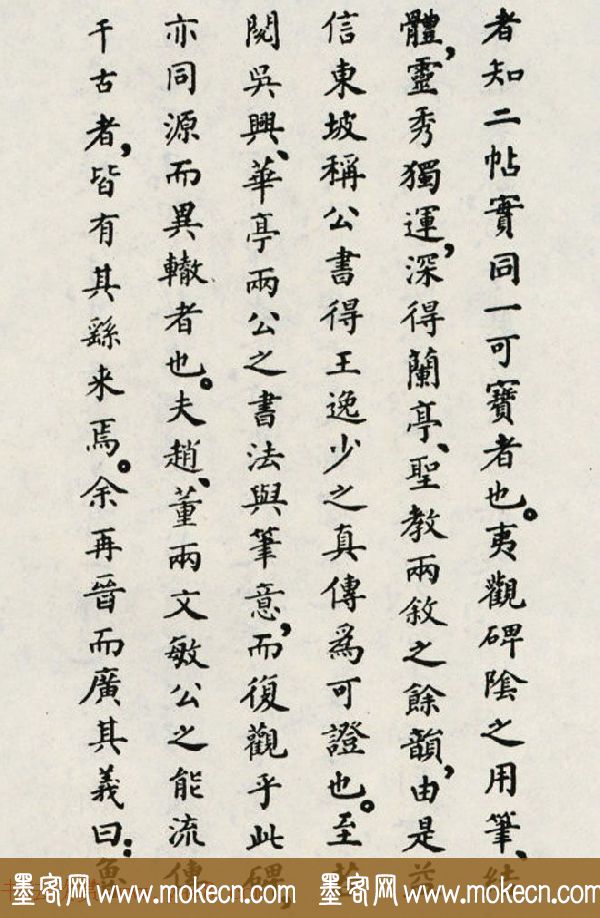 者知二帖實同一可寶者也。夷觀碑陰之用筆、結
體，靈秀獨運，深得蘭亭、聖教兩敘之餘韻，由是益
信東坡稱公書得王逸少之真傳爲可證也。至若
閱吳興、華亭兩公之書法與筆意，而復觀乎此碑，
亦同源而異轍者也。夫趙、董兩文敏公之能流傳
千古者，皆有其繇来焉。余再晉而廣其義曰：魚
墨客网 www.mokecn.com 墨客网 www.mokecn.com